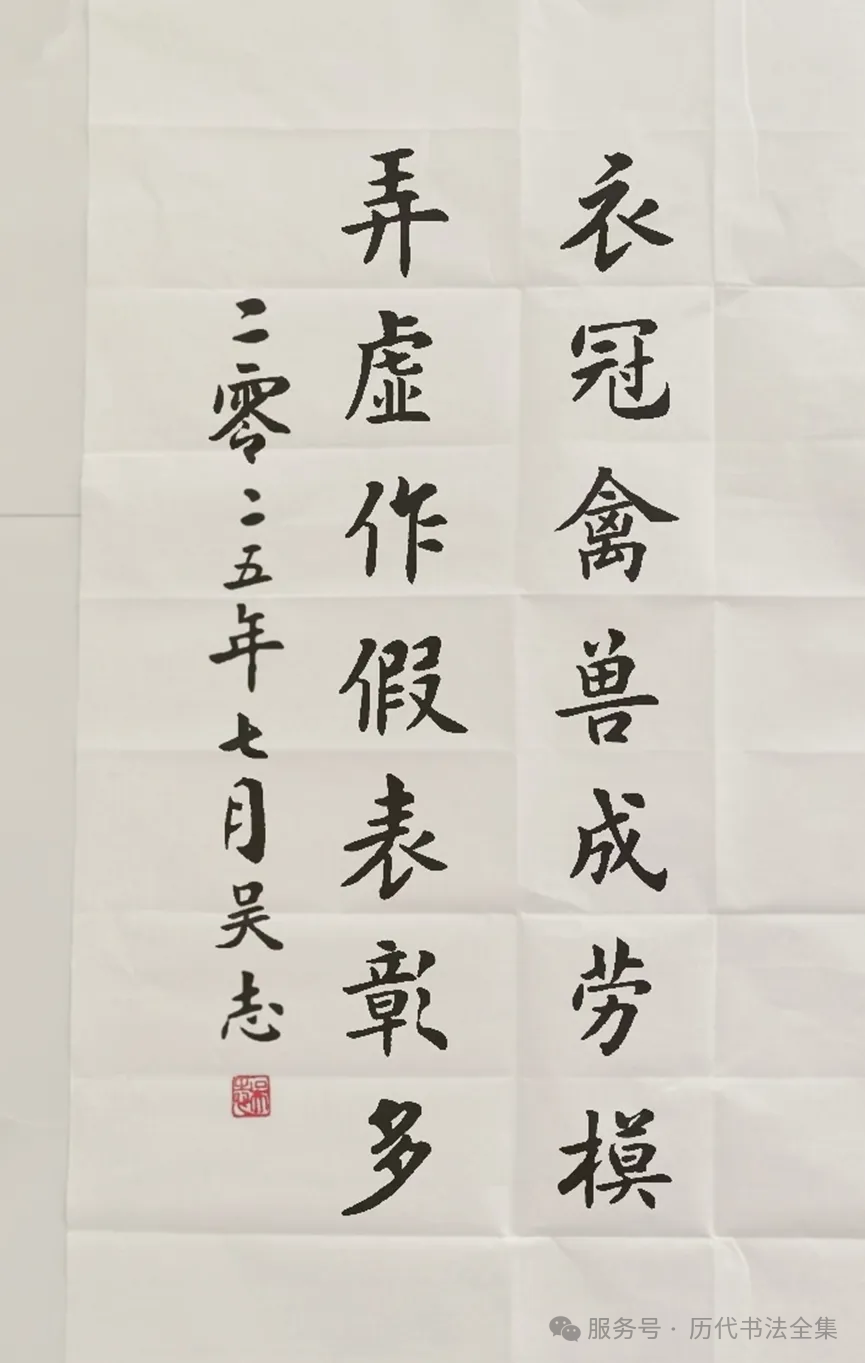 衣冠禽兽成劳模
弄虚作假表彰多
二零二五年七月吴志
吴志
服务号 · 历代书法全集